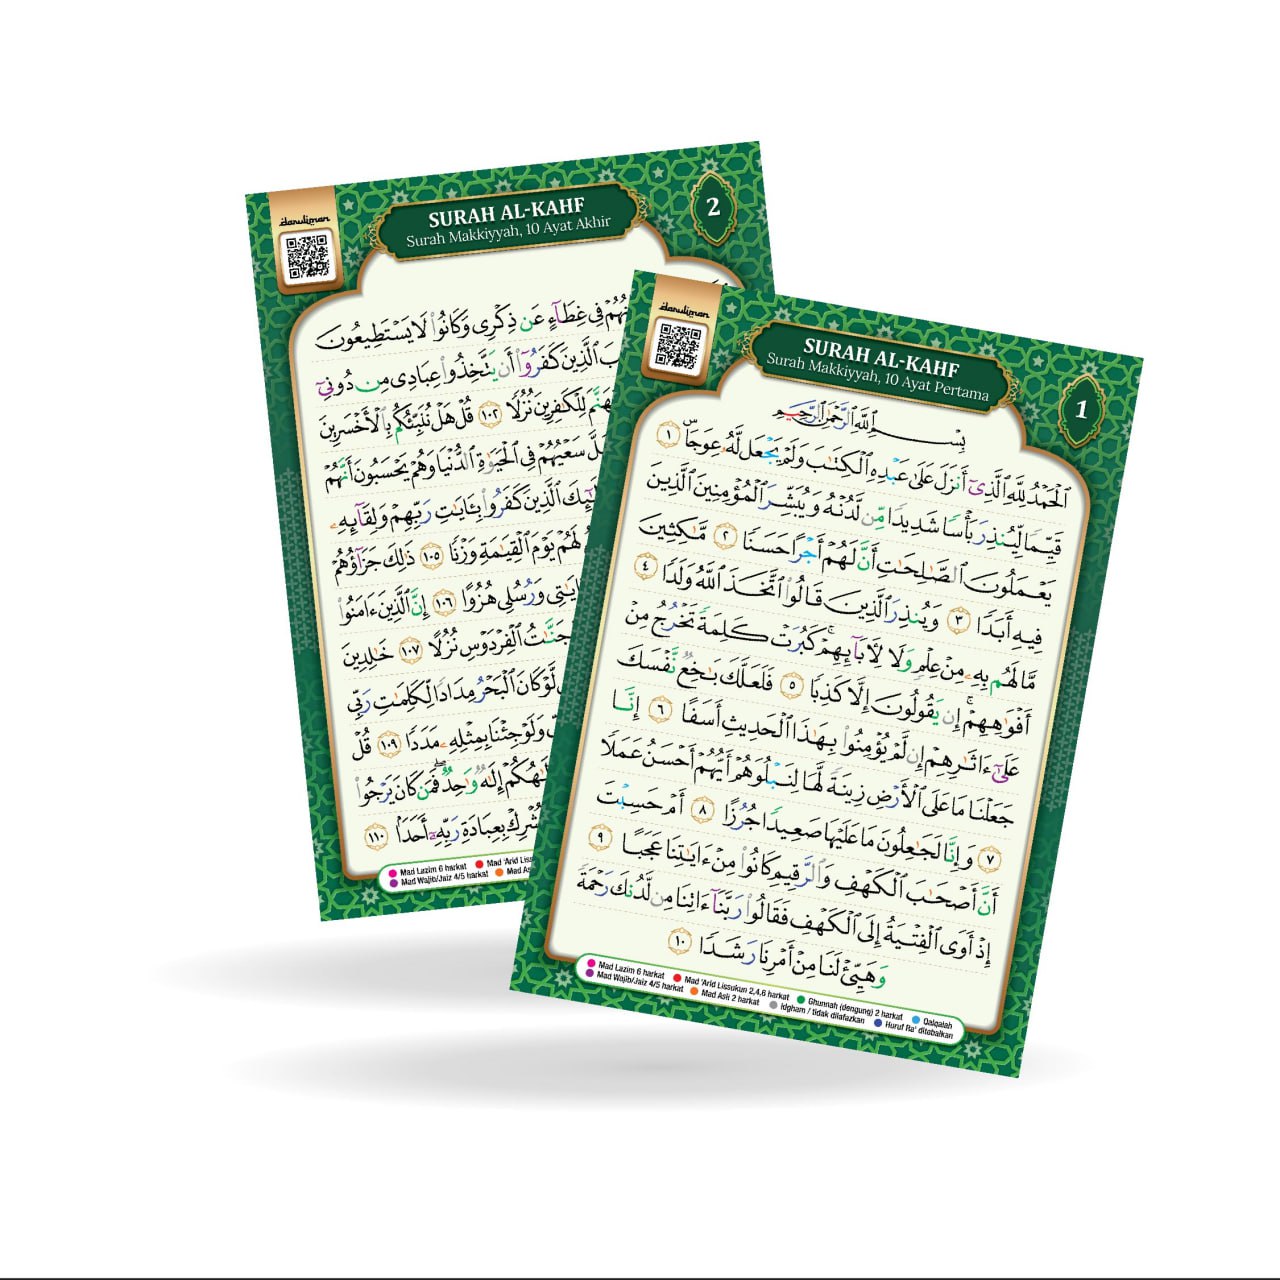 daruliman
SURAH AL-KAHF
Surah Makkiyyah, 10 Ayat Akhir
2
نُهُمْ فِى غِطَآءٍ عَن ذِكْرِى وَكَانُوا۟ لَا يَسْتَطِيعُونَ
بَ ٱلَّذِينَ كَفَرُوٓا۟ أَن يَتَّخِذُوا۟ عِبَادِى مِن دُونِىٓ
هَنَّمَ لِلْكَٰفِرِينَ نُزُلًا ١٠٢ قُلْ هَلْ نُنَبِّئُكُم بِٱلْأَخْسَرِينَ
لَّ سَعْيُهُمْ فِى ٱلْحَيَوٰةِ ٱلدُّنْيَا وَهُمْ يَحْسَبُونَ أَنَّهُمْ
لَٰٓئِكَ ٱلَّذِينَ كَفَرُوا۟ بِـَٔايَٰتِ رَبِّهِمْ وَلِقَآئِهِۦ
لَهُمْ يَوْمَ ٱلْقِيَٰمَةِ وَزْنًا ١٠٥ ذَٰلِكَ جَزَآؤُهُمْ
ايَٰتِى وَرُسُلِى هُزُوًا ١٠٦ إِنَّ ٱلَّذِينَ ءَامَنُوا۟
جَنَّٰتُ ٱلْفِرْدَوْسِ نُزُلًا ١٠٧ خَٰلِدِينَ
لَّوْ كَانَ ٱلْبَحْرُ مِدَادًا لِّكَلِمَٰتِ رَبِّى
وَلَوْ جِئْنَا بِمِثْلِهِۦ مَدَدًا ١٠٩ قُلْ
لَٰهُكُمْ إِلَٰهٌ وَٰحِدٌ فَمَن كَانَ يَرْجُوا۟
شْرِكْ بِعِبَادَةِ رَبِّهِۦٓ أَحَدًۢا ١١٠
Mad Lazim 6 harkat Mad 'Arid Liss
Mad Wajib/Jaiz 4/5 harkat Mad As
daruliman
SURAH AL-KAHF
Surah Makkiyyah, 10 Ayat Pertama
1
بِسْمِ ٱللَّهِ ٱلرَّحْمَٰنِ ٱلرَّحِيمِ
ٱلْحَمْدُ لِلَّهِ ٱلَّذِىٓ أَنزَلَ عَلَىٰ عَبْدِهِ ٱلْكِتَٰبَ وَلَمْ يَجْعَل لَّهُۥ عِوَجَاۜ ١
قَيِّمًا لِّيُنذِرَ بَأْسًا شَدِيدًا مِّن لَّدُنْهُ وَيُبَشِّرَ ٱلْمُؤْمِنِينَ ٱلَّذِينَ
يَعْمَلُونَ ٱلصَّٰلِحَٰتِ أَنَّ لَهُمْ أَجْرًا حَسَنًا ٢ مَّٰكِثِينَ
فِيهِ أَبَدًا ٣ وَيُنذِرَ ٱلَّذِينَ قَالُوا۟ ٱتَّخَذَ ٱللَّهُ وَلَدًا ٤
مَّا لَهُم بِهِۦ مِنْ عِلْمٍ وَلَا لِـَٔابَآئِهِمْ ۚ كَبُرَتْ كَلِمَةً تَخْرُجُ مِنْ
أَفْوَٰهِهِمْ ۚ إِن يَقُولُونَ إِلَّا كَذِبًا ٥ فَلَعَلَّكَ بَٰخِعٌ نَّفْسَكَ
عَلَىٰٓ ءَاثَٰرِهِمْ إِن لَّمْ يُؤْمِنُوا۟ بِهَٰذَا ٱلْحَدِيثِ أَسَفًا ٦ إِنَّا
جَعَلْنَا مَا عَلَى ٱلْأَرْضِ زِينَةً لَّهَا لِنَبْلُوَهُمْ أَيُّهُمْ أَحْسَنُ عَمَلًا
٧ وَإِنَّا لَجَٰعِلُونَ مَا عَلَيْهَا صَعِيدًا جُرُزًا ٨ أَمْ حَسِبْتَ
أَنَّ أَصْحَٰبَ ٱلْكَهْفِ وَٱلرَّقِيمِ كَانُوا۟ مِنْ ءَايَٰتِنَا عَجَبًا ٩
إِذْ أَوَى ٱلْفِتْيَةُ إِلَى ٱلْكَهْفِ فَقَالُوا۟ رَبَّنَآ ءَاتِنَا مِن لَّدُنكَ رَحْمَةً
وَهَيِّئْ لَنَا مِنْ أَمْرِنَا رَشَدًا ١٠
Mad Lazim 6 harkat Mad 'Arid Lissukun 2,4,6 harkat Ghunnah (dengung) 2 harkat Qalqalah
Mad Wajib/Jaiz 4/5 harkat Mad Asli 2 harkat Idgham / tidak dilafazkan Huruf Ra' ditebalkan